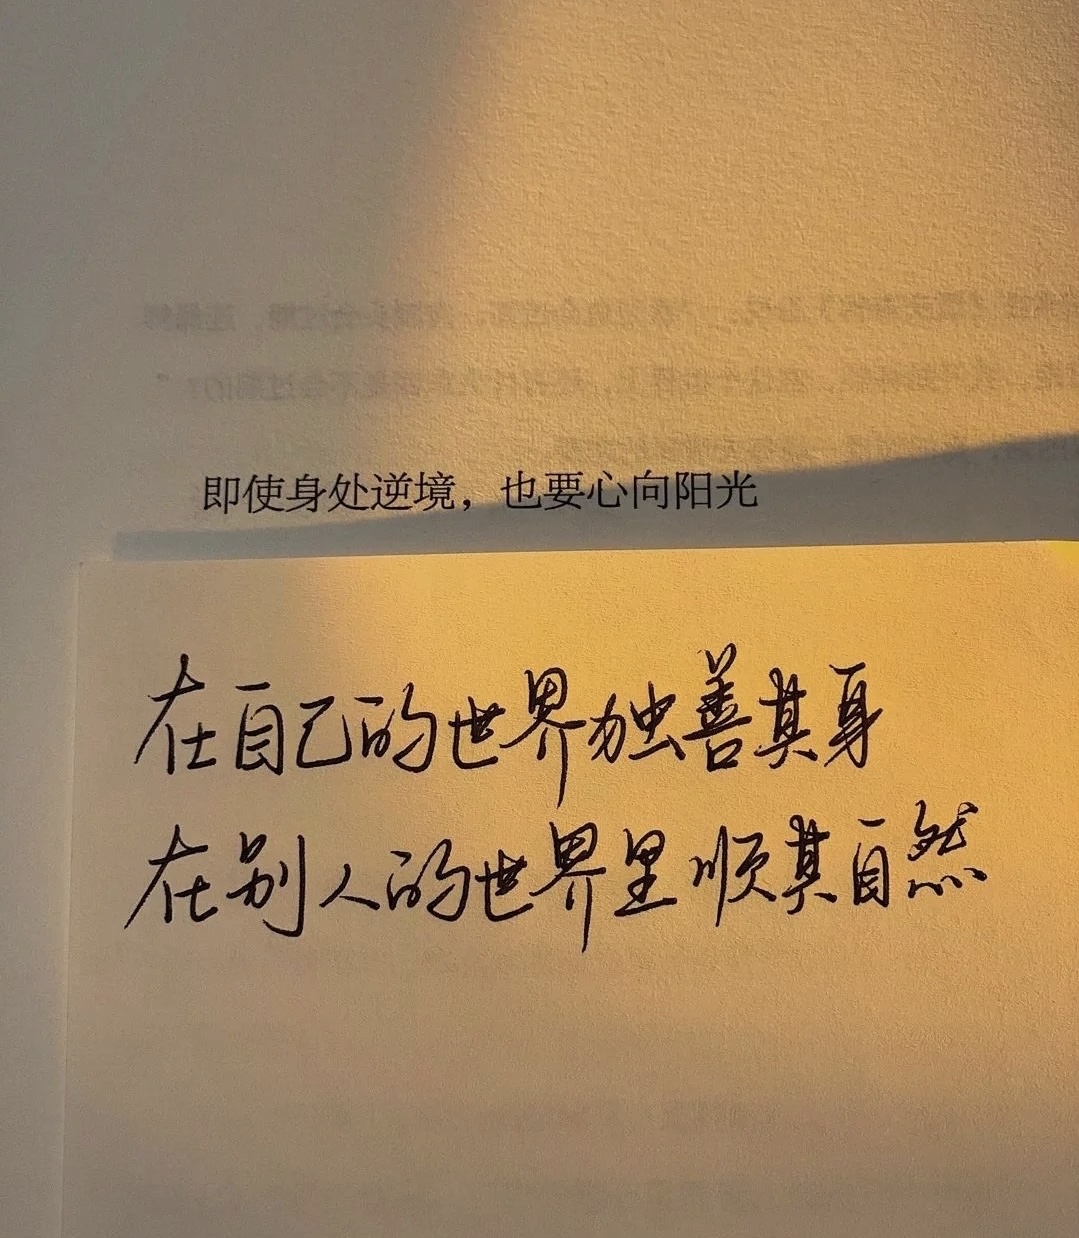 即使身处逆境，也要心向阳光
在自己的世界独善其身
在别人的世界里顺其自然